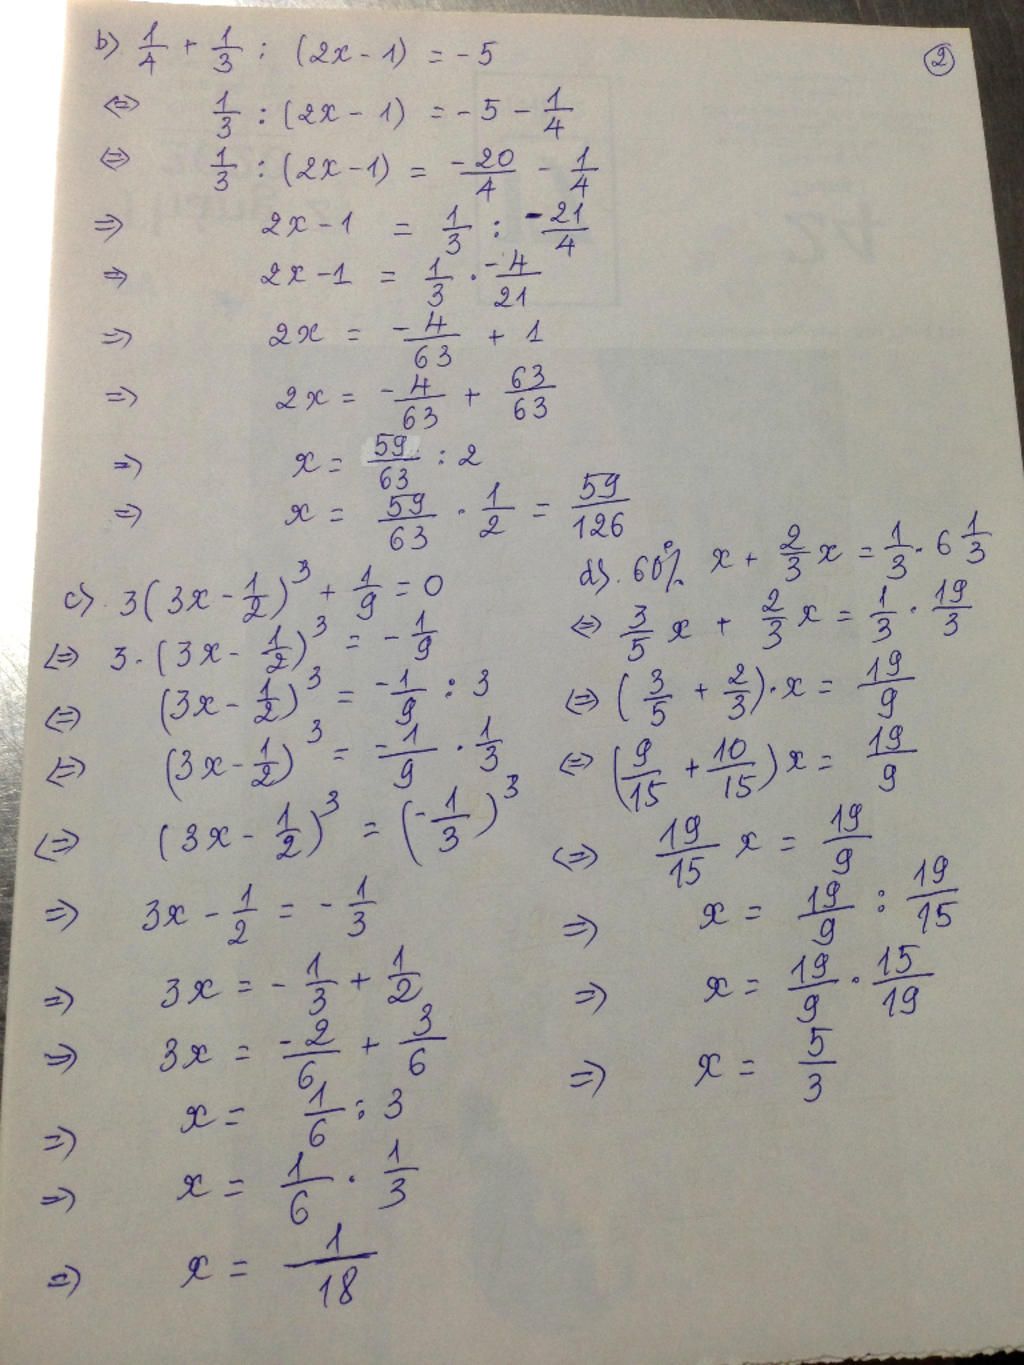 ②
b) 1/4 + 1/3 : (2x - 1) = - 5
⇔ 1/3 : (2x - 1) = - 5 - 1/4
⇔ 1/3 : (2x - 1) = -20/4 - 1/4
⇒ 2x - 1 = 1/3 : -21/4
⇒ 2x - 1 = 1/3 · -4/21
⇒ 2x = -4/63 + 1
⇒ 2x = -4/63 + 63/63
⇒ x = 59/63 : 2
⇒ x = 59/63 · 1/2 = 59/126
c) 3(3x - 1/2)³ + 1/9 = 0
⇔ 3 · (3x - 1/2)³ = - 1/9
⇔ (3x - 1/2)³ = -1/9 : 3
⇔ (3x - 1/2)³ = -1/9 · 1/3
⇔ (3x - 1/2)³ = (-1/3)³
⇒ 3x - 1/2 = - 1/3
⇒ 3x = - 1/3 + 1/2
⇒ 3x = -2/6 + 3/6
⇒ x = 1/6 : 3
⇒ x = 1/6 · 1/3
⇒ x = 1/18
d). 60% x + 2/3 x = 1/3 · 6 1/3
⇔ 3/5 x + 2/3 x = 1/3 · 19/3
⇔ (3/5 + 2/3) · x = 19/9
⇔ (9/15 + 10/15) x = 19/9
⇔ 19/15 x = 19/9
⇒ x = 19/9 : 19/15
⇒ x = 19/9 · 15/19
⇒ x = 5/3